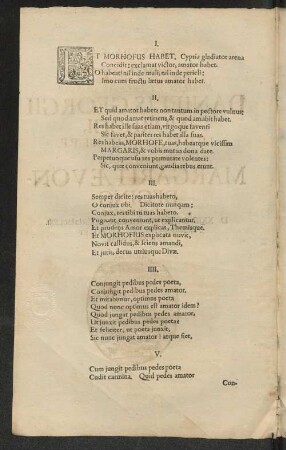 I.
ET MORHOFUS HABET, Cypriæ gladiator arenæ
Concidit: exclamat victor, amator habet.
O habeat: nil inde mali; nil inde pericli:
Imo cum fructu lætus amator habet.
II.
ET quid amator habet? non tantum in pectore vulnus
Sed quod amat retinens, & quod amabit habet.
Res habet ille suas etiam, virgoque faventi
Sic favet, & pariter res habet illa suas.
Res habeas, MORHOFE, tuas, habeatque vicissim
MARGARIS, & vobis mutua dona date.
Perpetuoque usu res permutate volentes:
Sic, quæ conveniunt, gaudia rebus erunt.
III.
Semper dicite: res tuas habeto,
O conjux tibi. Dicitote rursum:
Conjux, res tibi tu tuas habeto.
Pugnant, conveniunt, se explicantur,
Et prudens Amor explicat, Themisque.
Et MORHOFIUS explicata novit,
Novit callidus, & sciens amandi,
Et juris, decus utriusque Divæ.
IIII.
Conjungit pedibus pedes poeta,
Conjungit pedibus pedes amator.
Et miramur, optimus poeta
Quod nunc optimus est amator idem?
Quod jungat pedibus pedes amator,
Ut junxit pedibus pedes poeta?
Et feliciter, ut poeta junxit,
Sic nunc jungat amator: æque fiet.
V.
Cum jungit pedibus pedes poeta
Cudit carmina. Quid pedes amator
Con-